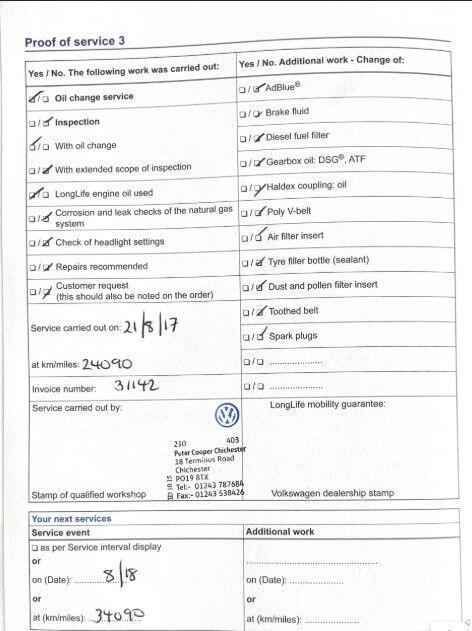 Proof of service 3
Yes / No. The following work was carried out:
☑/☐ Oil change service
☐/☑ Inspection
☑/☐ With oil change
☐/☑ With extended scope of inspection
☑/☐ LongLife engine oil used
☐/☑ Corrosion and leak checks of the natural gas
system
☐/☑ Check of headlight settings
☐/☑ Repairs recommended
☐/☑ Customer request
(this should also be noted on the order)
Service carried out on: 21/8/17
at km/miles: 24090
Invoice number: 31142
Yes / No. Additional work - Change of:
☐/☑ AdBlue®
☐/☑ Brake fluid
☐/☑ Diesel fuel filter
☐/☑ Gearbox oil: DSG®, ATF
☐/☑ Haldex coupling: oil
☐/☑ Poly V-belt
☐/☑ Air filter insert
☐/☑ Tyre filler bottle (sealant)
☐/☑ Dust and pollen filter insert
☐/☑ Toothed belt
☐/☑ Spark plugs
☐/☐ ....................
☐/☐ ....................
Service carried out by:
210 403
Peter Cooper Chichester
18 Terminus Road
Chichester
PO19 8TX
Tel:- 01243 787684
Fax:- 01243 538426
Stamp of qualified workshop
LongLife mobility guarantee:
Volkswagen dealership stamp
Your next services
Service event
☐ as per Service interval display
or
on (Date): 8/18
or
at (km/miles): 34090
Additional work
........................................
on (Date): ....................
or
at (km/miles): ....................